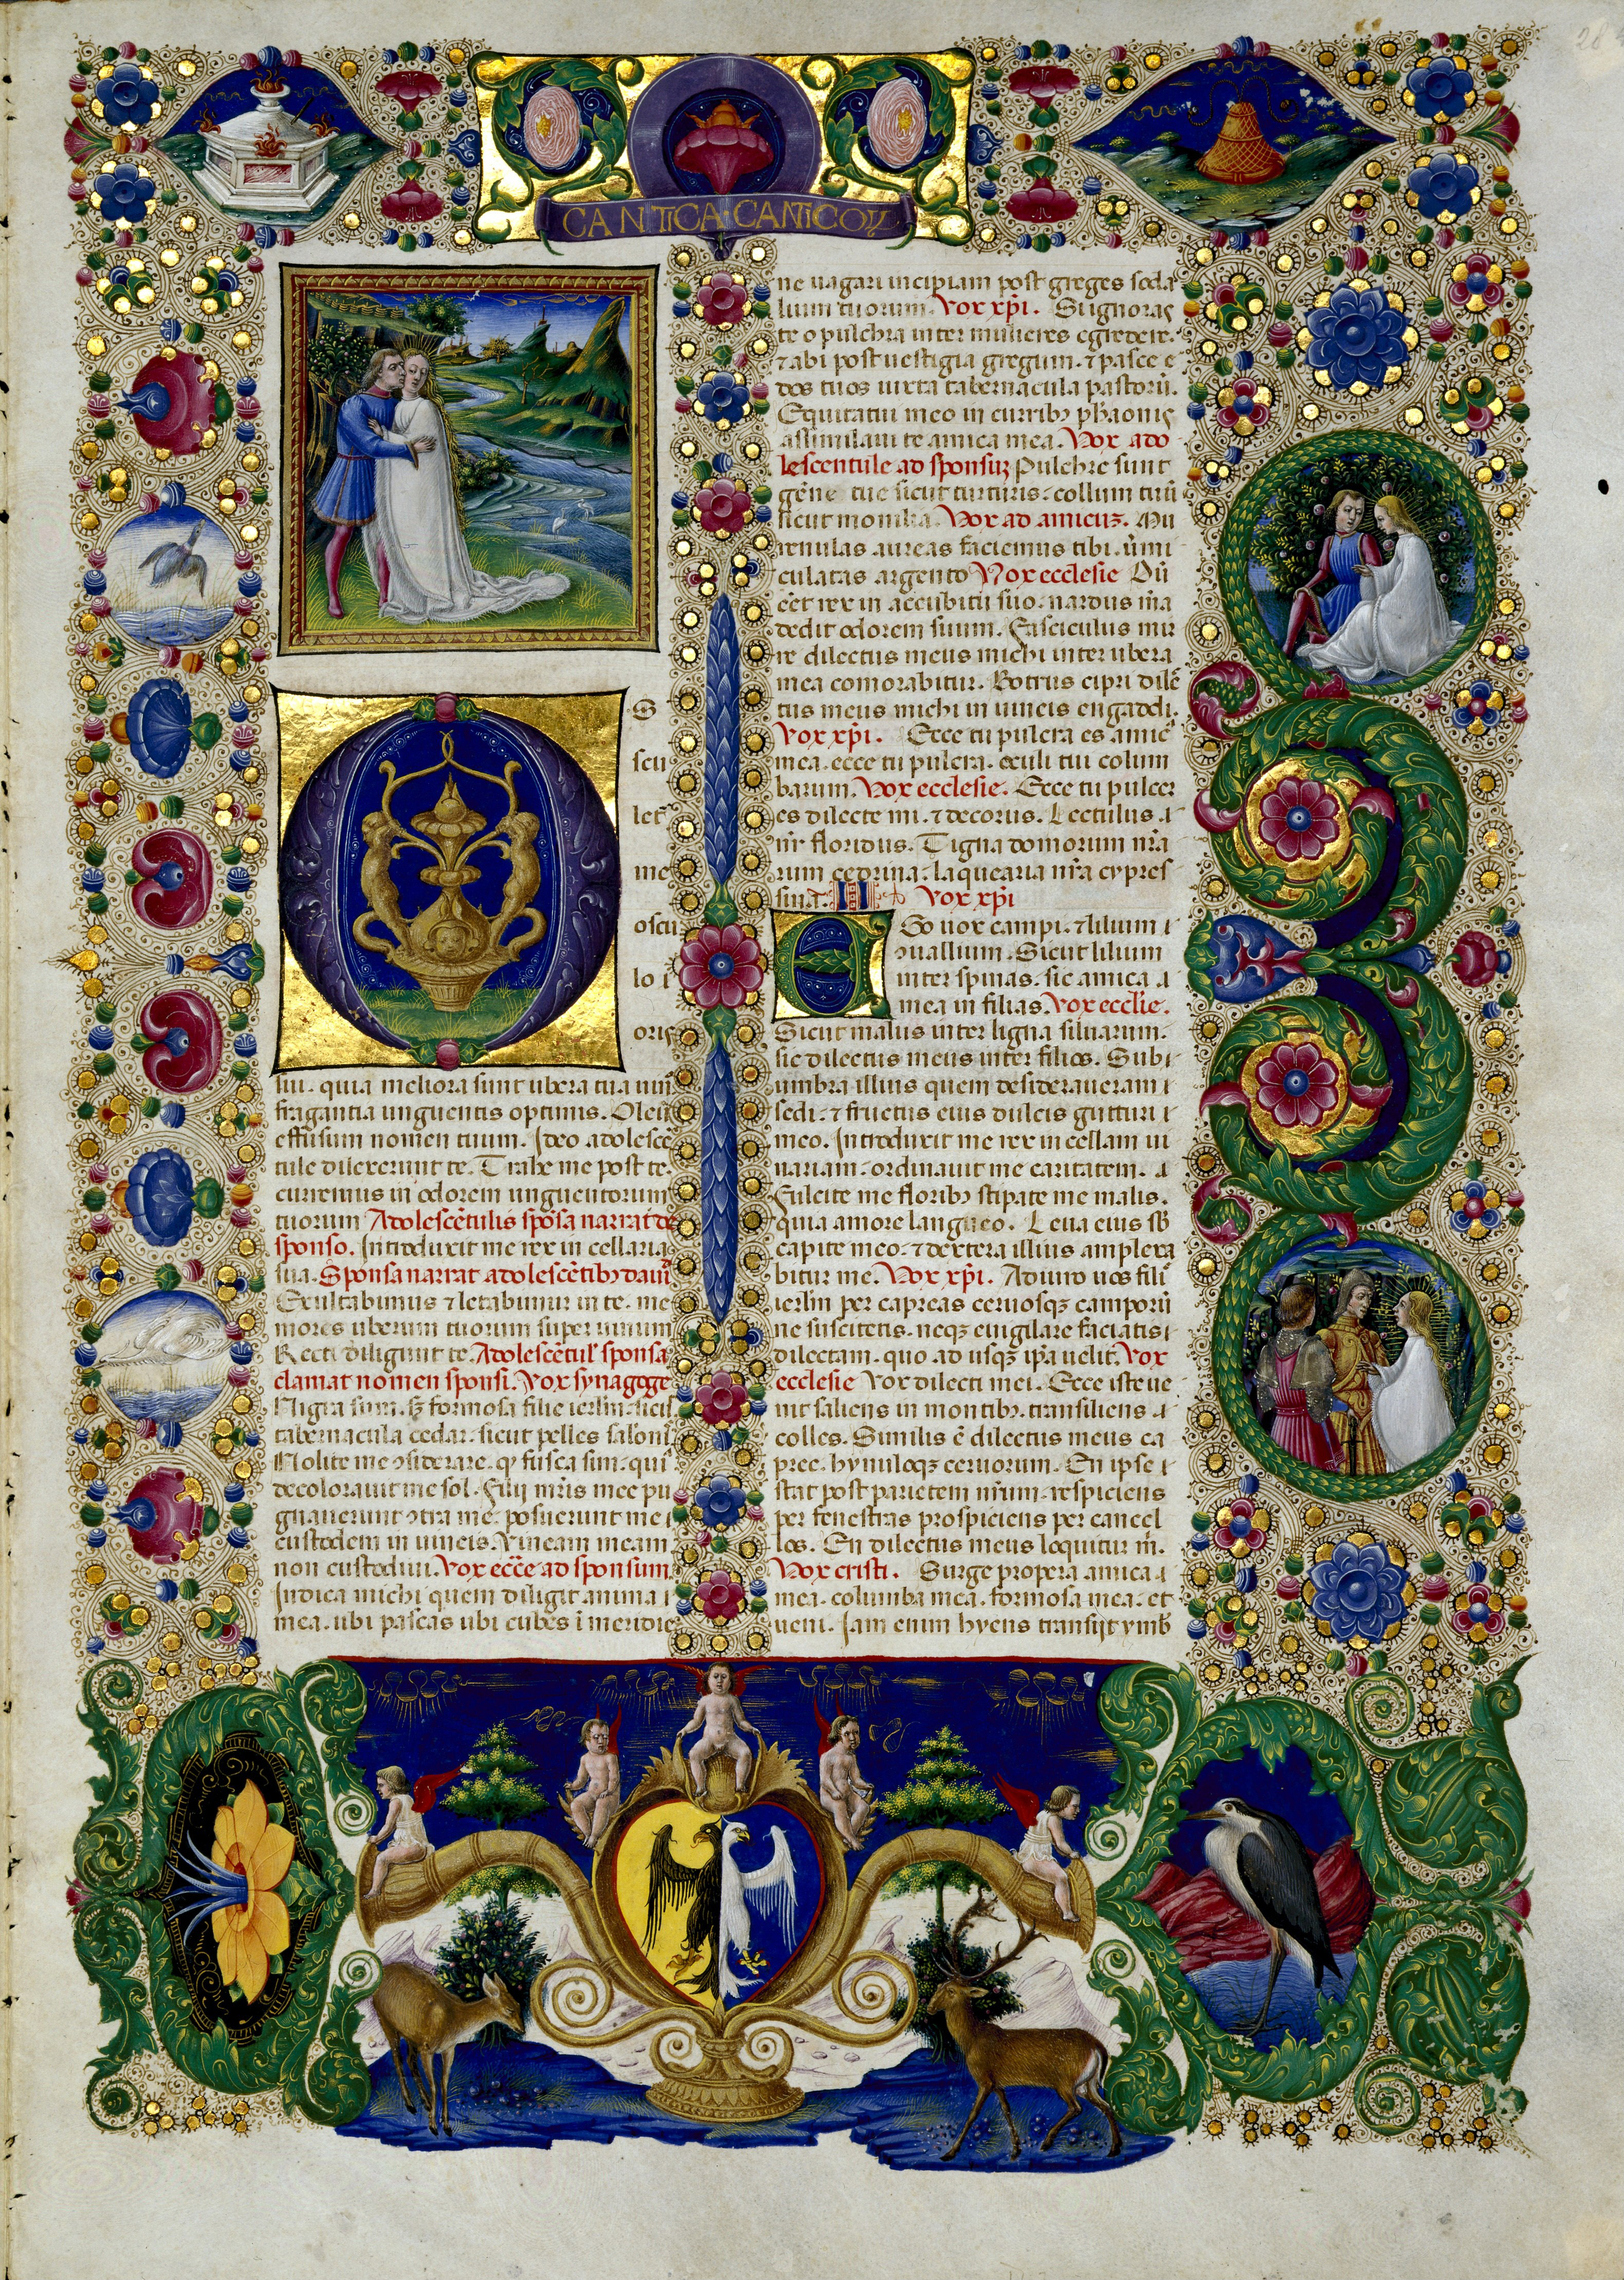 CANTICA CANTICOꝜ
S
scu
letr̄
me
oscu
lo ī
oris
sui. quia meliora sunt ubera tua uino
fragantia unguentis optimis. Oleū
effusum nomen tuum. Ideo adolescē
tule dilexerunt te. Trahe me post te.
curremus in odorem unguentorum
tuorum Adolescētulis spōsa narrat de
sponso. Introduxit me rex in cellaria
sua. Sponsa narrat adolescētibꝫ
Exultabimus ⁊ letabimur in te. me
mores uberum tuorum super uinum
Recti diligunt te. Adolescētul' sponsa
clamat nomen sponsi. Vox synagoge
Nigra sum. sꝫ formosa filie ierlm̄. sicut
tabernacula cedar. sicut pelles salom̄
Nolite me ↄsiderare. ꝙ fusca sim. quia
decolorauit me sol. filij mr̄is mee pu
gnauerunt ↄtra me. posuerunt me ı
custodem in uineis. Vineam meam
non custodiui. Vox ecc̄e ad sponsum.
Indica michi quem diligit anima ı
mea. ubi pascas ubi cubes ī meridie
ne uagari incipiam post greges soda
lium tuorum. Vox xp̄i. Si ignoras
te o pulchra inter mulieres egredere.
⁊ abi post uestigia gregum. ⁊ pasce e
dos tuos iuxta tabernacula pastorū.
Equitatui meo in curribꝫ pharaonis
assimilaui te amica mea. Vox ado
lescentule ad sponsuꝫ Pulchre sunt
gēne tue sicut turturis. collum tuū
sicut monilia. Vox ad amicuꝫ. Mu
renulas aureas faciemus tibi. ūmi
culatas argento Vox ecclesie Dū
eēt rex in accubitu suo. nardus mr̄a
dedit odorem suum. Fasciculus mir
re dilectus meus michi inter ubera
mea comorabitur. Botrus cipri dilec
tus meus michi in uineis engaddi.
Vox xp̄i. Ecce tu pulcra es amica
mea. ecce tu pulcra. oculi tui colum
barum. Vox ecclesie. Ecce tu pulcer
es dilecte mi. ⁊ decorus. Lectulus ı
nr̄ floridus. Tigna domorum nr̄a
rum cedrina. laquearia nr̄a cypres
sina. II Vox xp̄i
Ego uox campi. ⁊ lilium ı
ↄuallium. Sicut lilium
inter spinas. sic amica ı
mea in filias. Vox ecclīe.
Sicut malus inter ligna siluarum.
sic dilectus meus inter filios. Sub ı
umbra illius quem desideraueram ı
sedi. ⁊ fructus eius dulcis gutturi ı
meo. Introduxit me rex in cellam ui
nariam. ordinauit me caritatem. ı
Fulcite me floribꝫ stipate me malis.
quia amore langueo. Leua eius sb̄
capite meo. ⁊ dextera illius amplexa
bitur me. Vox xp̄i. Adiuro uos filie
ierlm̄ per capreas ceruosqꝫ camporū
ne suscitetis. neqꝫ euigilare faciatis ı
dilectam. quo ad usqꝫ ip̄a uelit. Vox
ecclesie Vox dilecti mei. Ecce iste ue
nit saliens in montibꝫ. transiliens ı
colles. Similis ē dilectus meus ca
pree. hynuloqꝫ ceruorum. En ipse ı
stat post parietem nr̄um. respiciens
per fenestras prospiciens per cancel
los. En dilectus meus loquitur m̄.
Vox cristi. Surge propera amica ı
mea. columba mea. formosa mea. et
ueni. Iam enim hyens transijt ymb̄